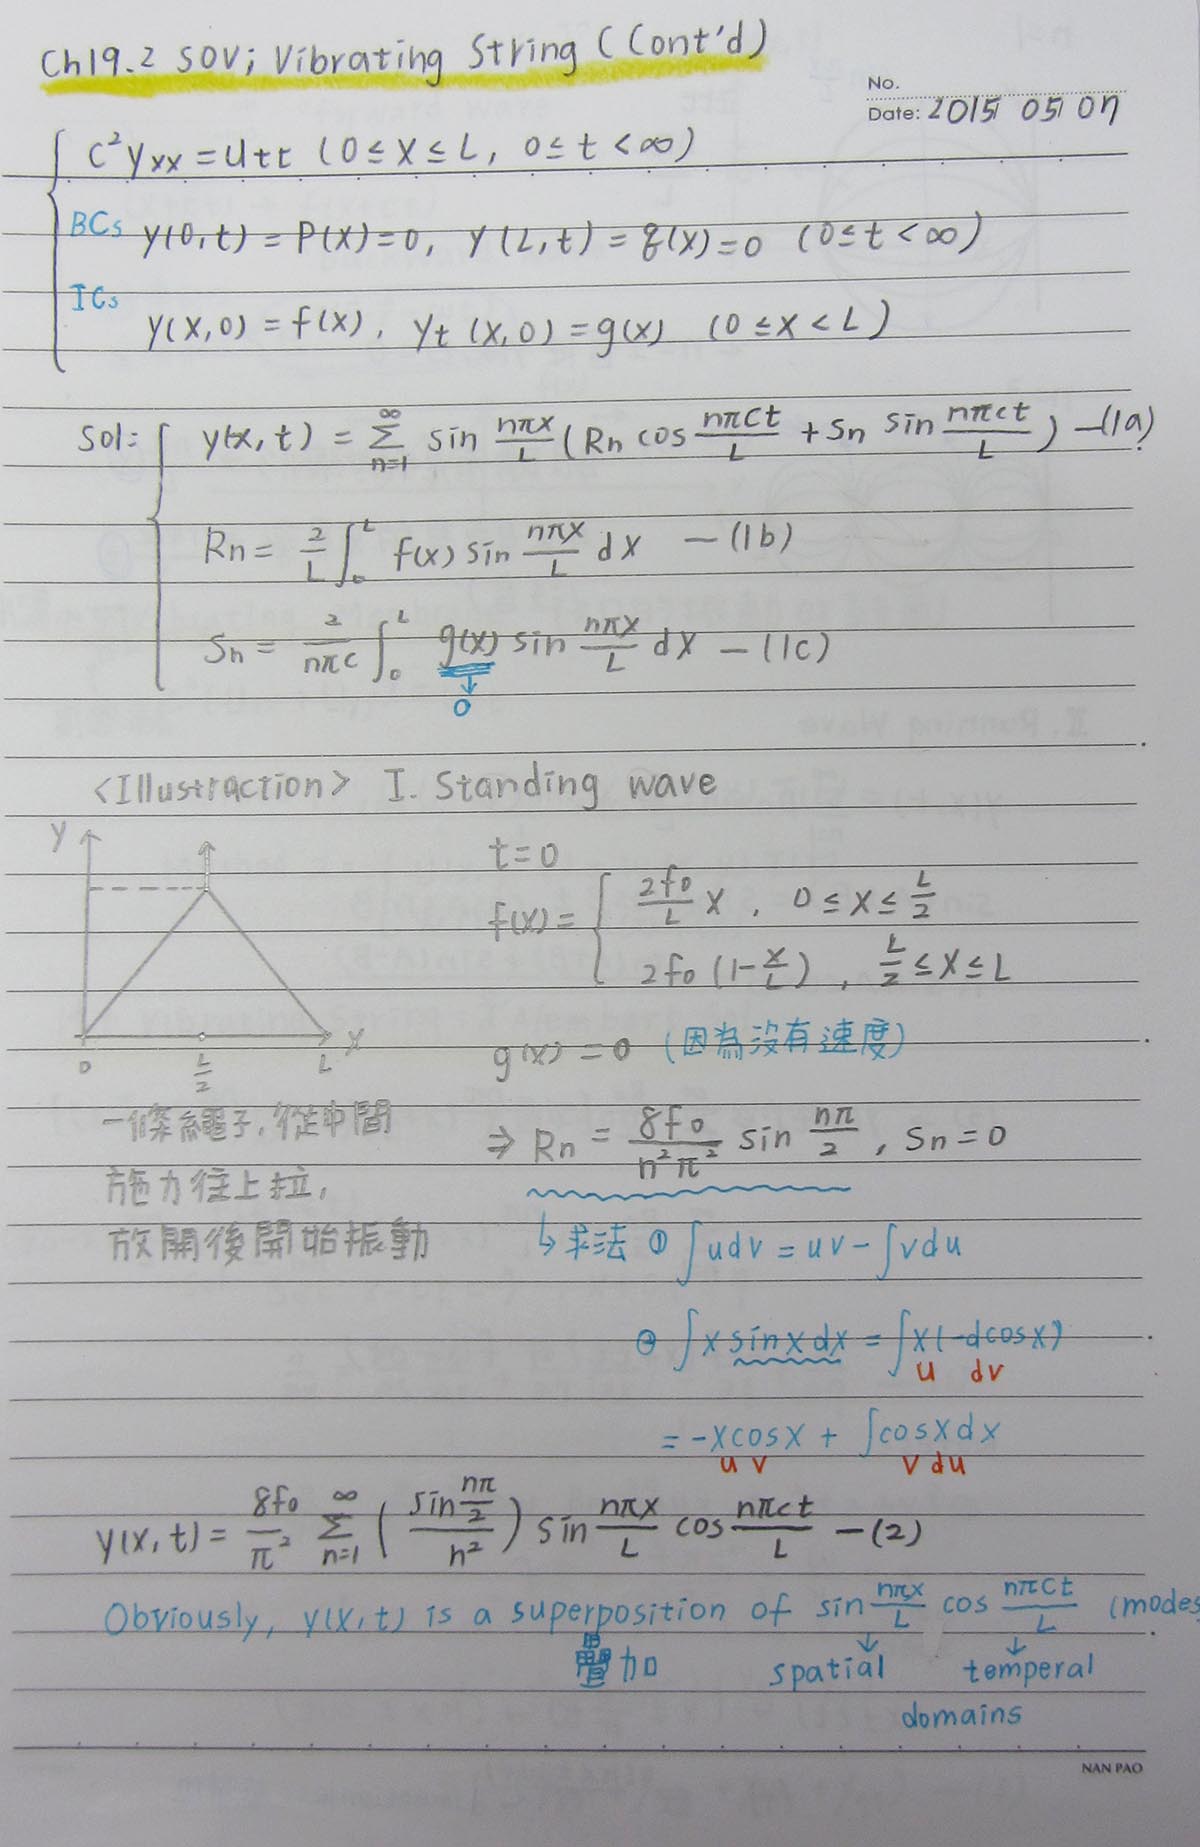 Ch19.2 SOV; Vibrating String (Cont'd)
No.
Date: 2015 05 07
C²yxx = Utt (0 ≤ X ≤ L, 0 ≤ t < ∞)
BCs y(0,t) = P(X) = 0, y(L,t) = q(X) = 0 (0 ≤ t < ∞)
ICs y(X,0) = f(X), yt(X,0) = g(x) (0 ≤ X < L)
Sol: y(x,t) = Σ_{n=1}^{∞} sin nπx/L (Rn cos nπct/L + Sn sin nπct/L) —(1a)
Rn = 2/L ∫₀ᴸ f(x) sin nπx/L dx —(1b)
Sn = 2/nπc ∫₀ᴸ g(x) sin nπx/L dx —(1c)
↓
0
<Illustraction> I. Standing wave
y
t = 0
f(X) = { 2f0/L X, 0 ≤ X ≤ L/2
2f0 (1 - X/L), L/2 ≤ X ≤ L
0 L/2 L X
g(x) = 0 (因為沒有速度)
一條繩子,從中間
施力往上拉,
放開後開始振動
⇒ Rn = 8f0/n²π² sin nπ/2, Sn = 0
↳ 求法 ① ∫udv = uv - ∫vdu
② ∫x sinx dx = ∫x(-dcosx)
u dv
= -xcosx + ∫cosxdx
u v v du
y(x,t) = 8f0/π² Σ_{n=1}^{∞} (sin nπ/2 / n²) sin nπx/L cos nπct/L —(2)
Obviously, y(x,t) is a superposition of sin nπx/L cos nπct/L (modes
疊加 ↓ spatial ↓ temperal
domains
NAN PAO